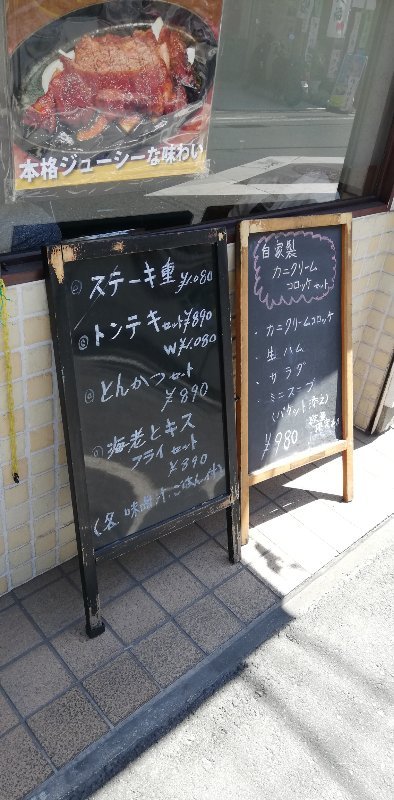 本格ジューシーな味わい
◎ ステーキ重 ¥1,080
◎ トンテキセット ¥890
W ¥1,080
◎ とんかつセット
¥890
◎ 海老とキス
フライセット
¥890
(各 味噌汁・ごはん付)
自家製
カニクリーム
コロッケセット
・カニクリームコロッケ
・生ハム
・サラダ
・ミニスープ
¥980